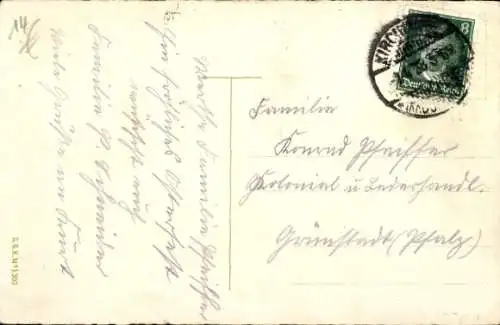 14
KIRCH
8
Deutsches Reich
Familie
Konrad Pfeiffer
Kolonial u Lederhandl.
Grünstadt (Pfalz)
Werthe Familie Pfeiffer
Ein fröhliches Osterfest
wünscht auch
Familie P. Schneider
Viele Grüße an Kurt